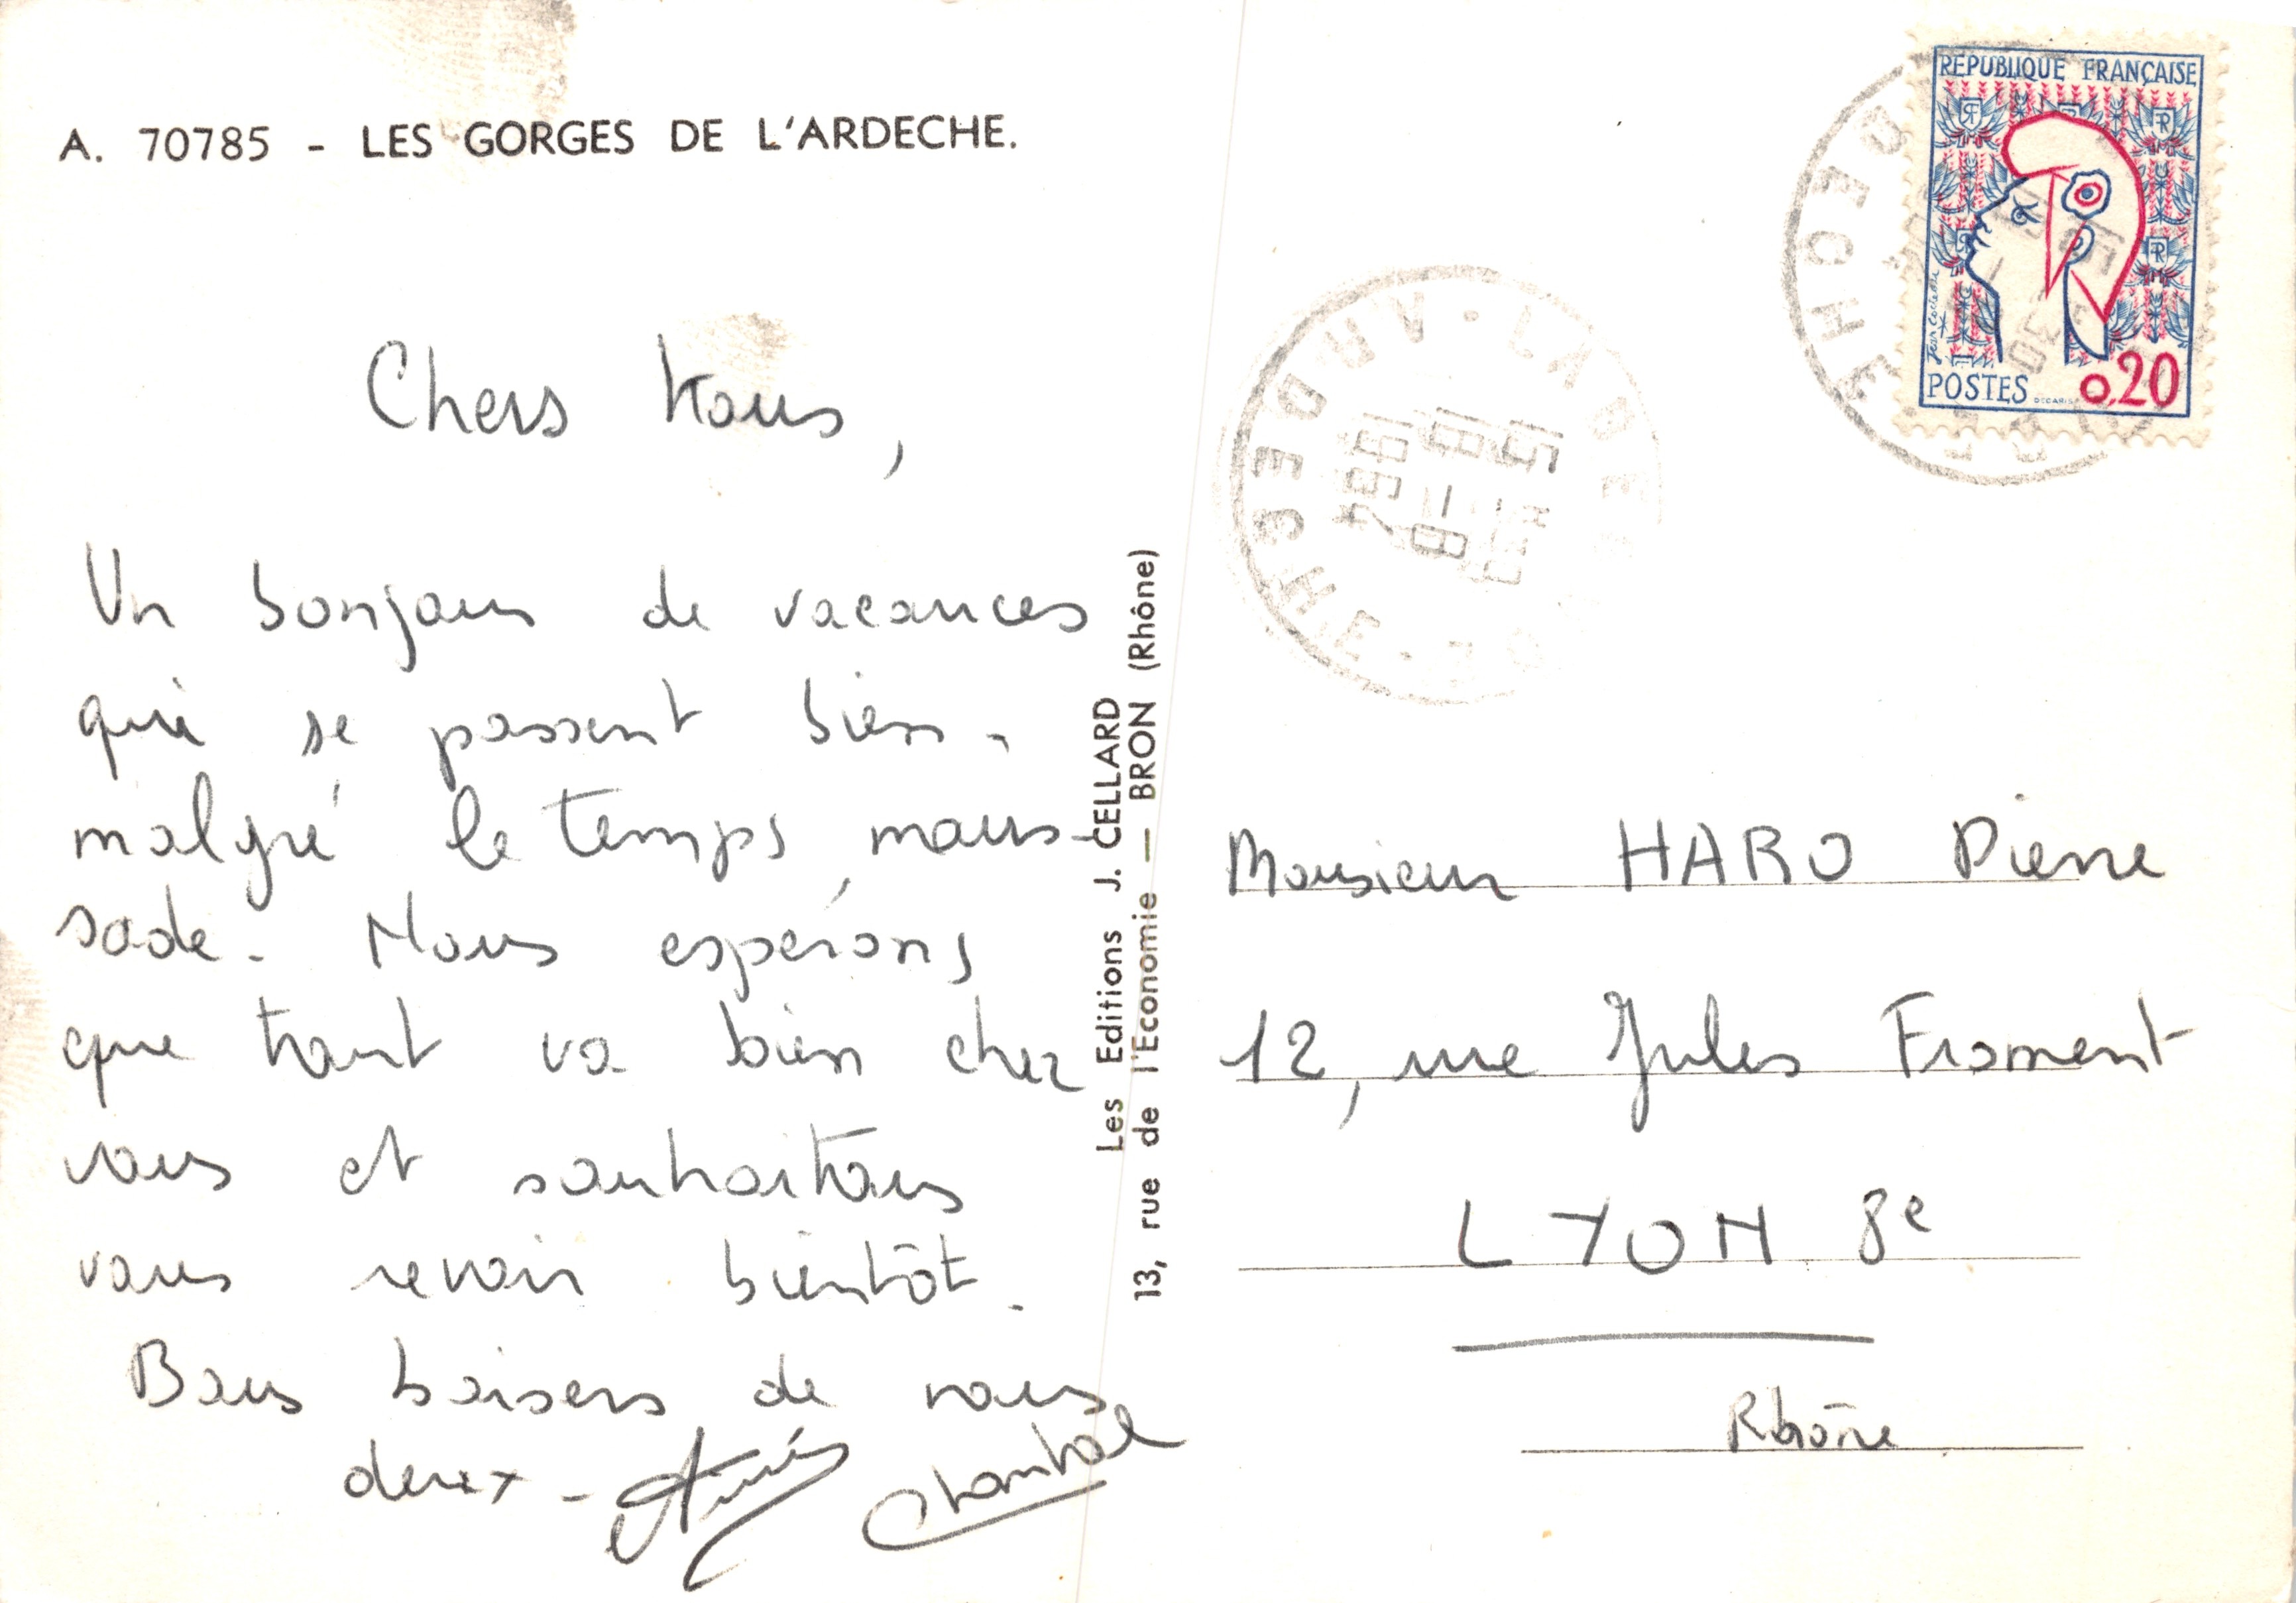 A. 70785 - LES GORGES DE L'ARDECHE.
Chers tous,
Un bonjour de vacances
qui se passent bien.
malgré le temps, maus-
sade. Nous espérons
que tout va bien chez
vous et souhaitons
vous revoir bientôt.
Bons baisers de nous
deux -
Chantal
Les Editions J. CELLARD
13, rue de l'Economie — BRON (Rhône)
REPUBLIQUE FRANÇAISE
POSTES 0,20
DECARIS
ARDECHE
15H
8 - 8
1964
Monsieur HARO Pierre
12, rue Jules Froment
LYON 8e
Rhône